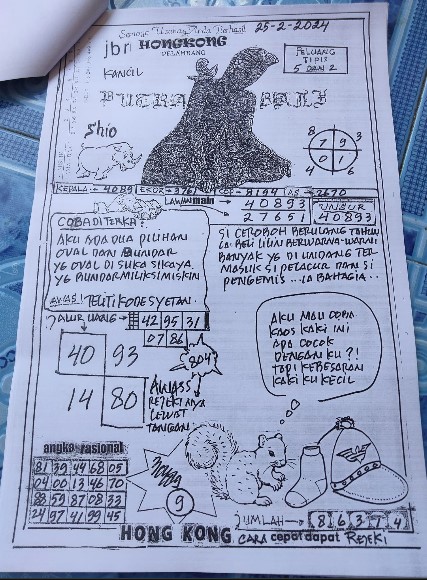 Semoga Usaha Anda Berhasil
25-2-2024
jbr HONGKONG
PELAMBANG
PELUANG
TIPIS
5 DAN 2
KANCIL
PUTRA BALI
Shio
8 3
7 9
0 1
4 6
KEPALA :- 4089 EKOR :- 3761 COC :- 8194 AS :- 2670
LAWAN main → 40893
27651
UNSUR
40893
COBA DITERKA?
AKU ADA DUA PILIHAN
OVAL DAN BUNDAR
YG OVAL DI SUKA SIKAYA.
YG BUNDAR MILIK SIMISKIN
SI CEROBOH BERULANG TAHUN
IA BELI LILIN BERWARNA-WARNI
BANYAK YG DI UNDANG TER
MASUK SI PELACUR DAN SI
PENGEMIS ...IA BAHAGIA..
AWAS! TELITI KODE SYETAN.
JALUR UANG
42 95 31
07 86
804
40 93
14 80
AWASS
REJEKI NYA
LEWAT
TANGGAN
AKU MAU COBA
KAOS KAKI INI
APA COCOK
DENGAN KU ?!
TAPI KEBESARAN
KAKI KU KECIL
angka rasional
81 39 44 68 05
04 00 13 46 70
88 59 87 08 33
24 97 41 99 45
9
JUMLAH → 8 6 3 7 4
HONG KONG CARA cepat dapat REJEKI